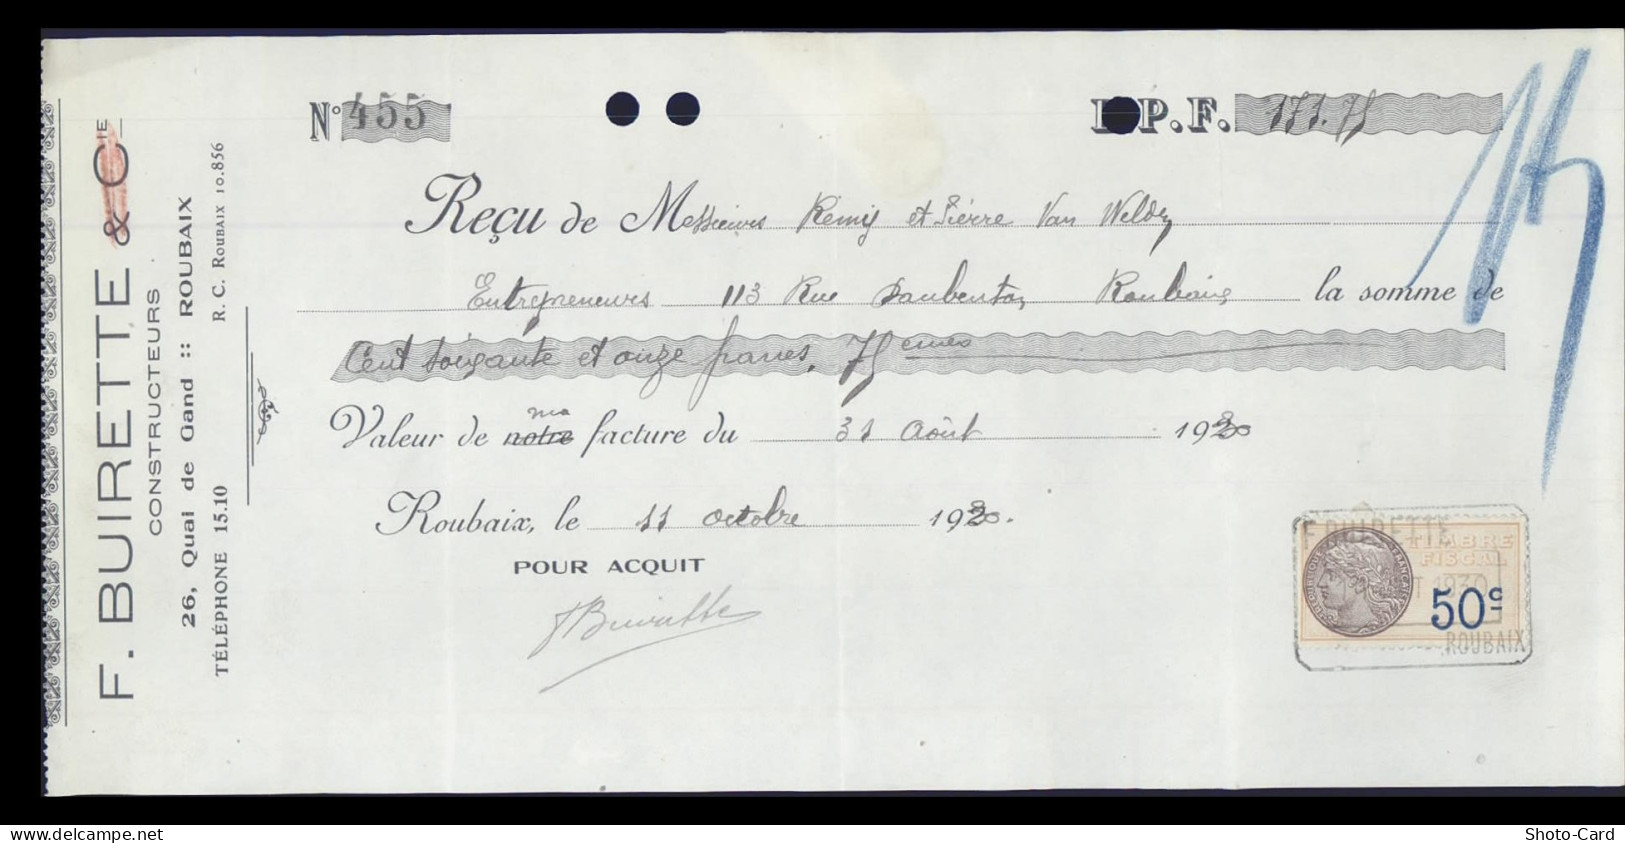 F. BUIRETTE & CIE
CONSTRUCTEURS
26, Quai de Gand :: ROUBAIX
TÉLÉPHONE 15.10 R. C. ROUBAIX 10.856
N° 455
B.P.F. 171.75
Reçu de Messieurs Rémy et Pierre Van Welden
Entrepreneurs 113 Rue Daubenton Roubaix la somme de
Cent soixante et onze francs, 75 emes
ma
Valeur de notre facture du 31 Août 1930
Roubaix, le 11 octobre 1930.
POUR ACQUIT
F Buirette
F. BUIRETTE
TIMBRE
FISCAL
1930
50c
ROUBAIX
delcampe.net
Shoto-Card